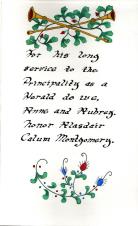 For his long
service to the
Principality as a
Herald do we,
Anne and Aubrey,
honor Alasdair
Calum Montgomery.